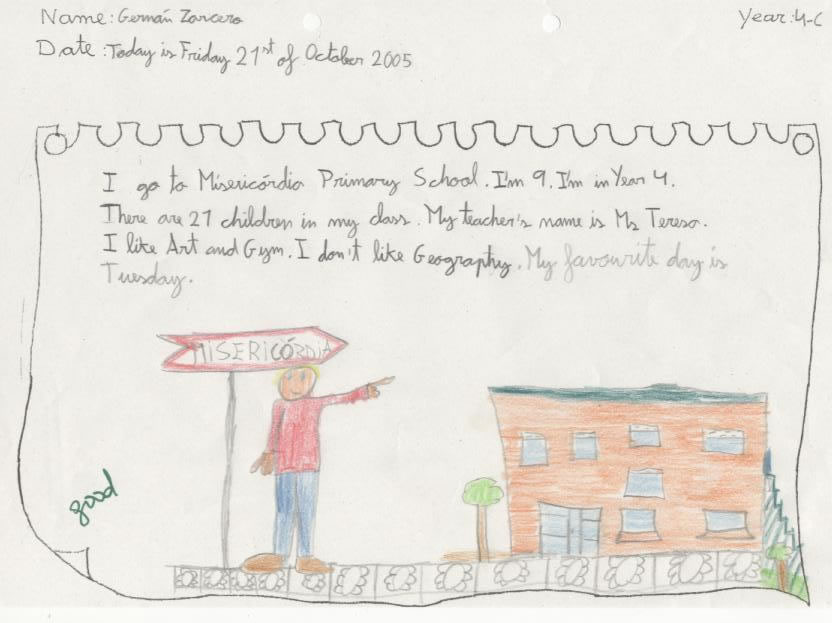 Name: Germán Zarcero
Year: 4-C
Date: Today is Friday 21st of October 2005
I go to Misericórdia Primary School. I'm 9. I'm in Year 4.
There are 21 children in my class. My teacher's name is Ms Teresa.
I like Art and Gym. I don't like Geography. My favourite day is
Tuesday.
MISERICÓRDIA
good